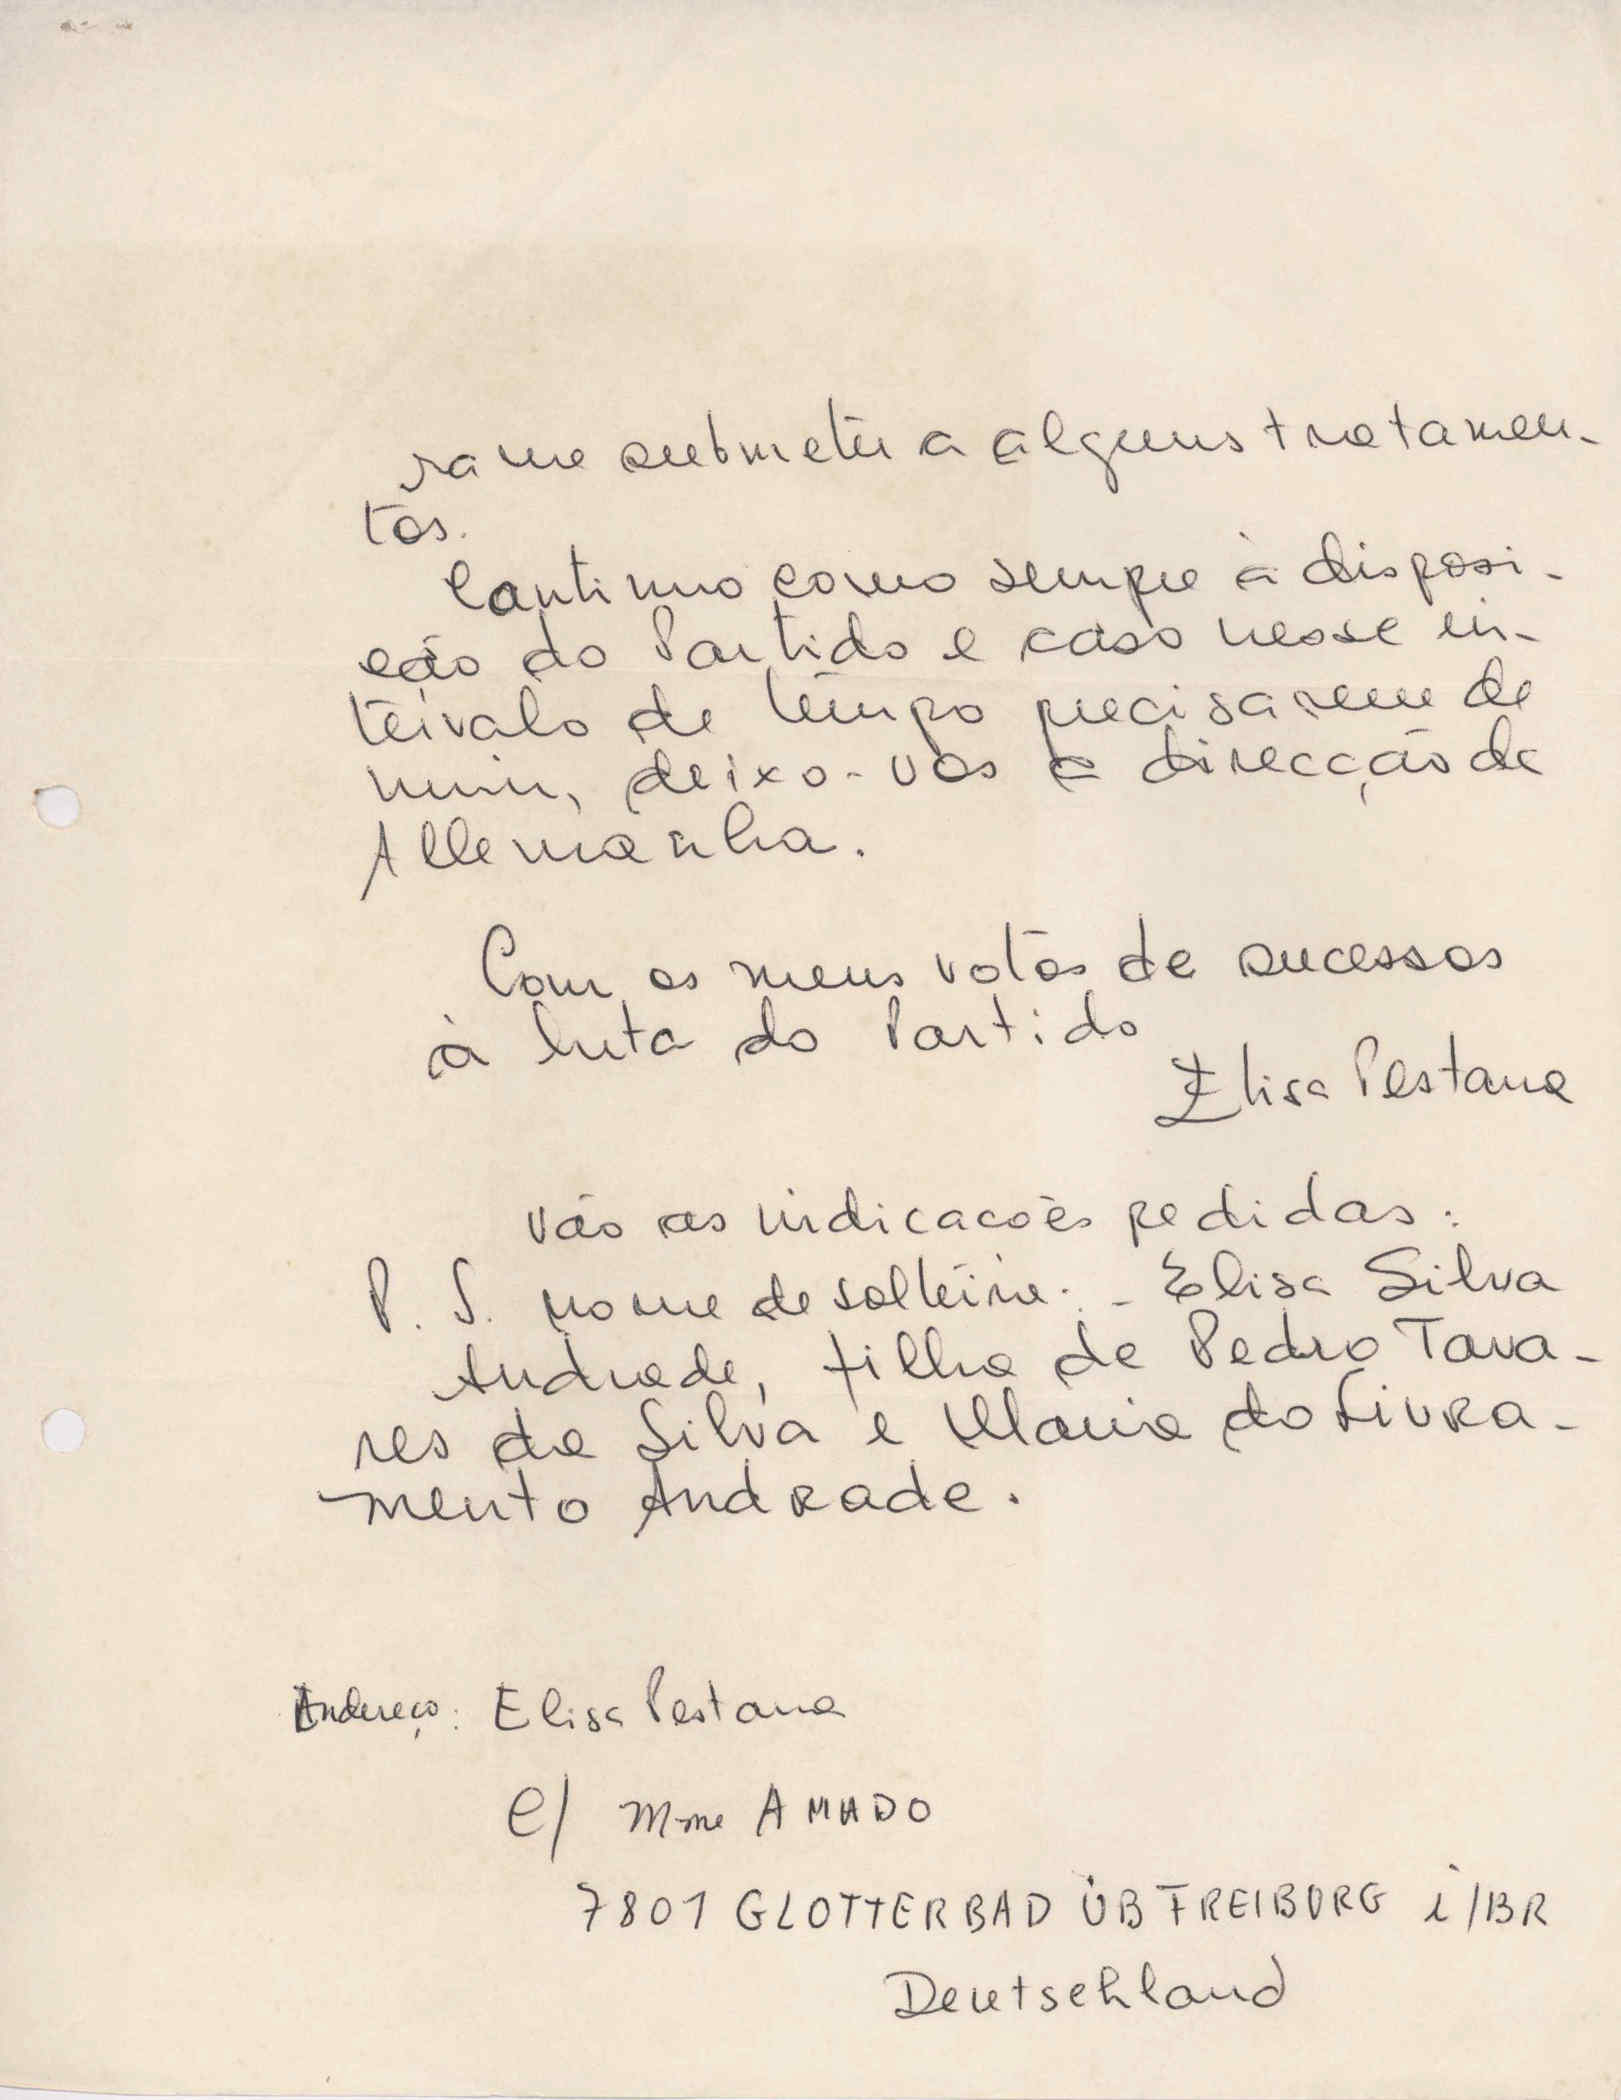 ra me submeter a alguns tratamen-
tos.
Continuo como sempre à disposi-
cão do Partido e caso nesse in-
tervalo de tempo precisarem de
mim, deixo-vos a direcção da
Allemanha.
Com os meus votos de sucessos
à luta do Partido
Elisa Pestana
Vão as indicacões pedidas:
P. S. nome de solteira. - Elisa Silva
Andrade, filha de Pedro Tava-
res da Silva e Maria do Livra-
mento Andrade.
Endereço: Elisa Pestana
c/ Mme AMADO
7801 GLOTTERBAD ÜB FREIBURG i/BR
Deutschland